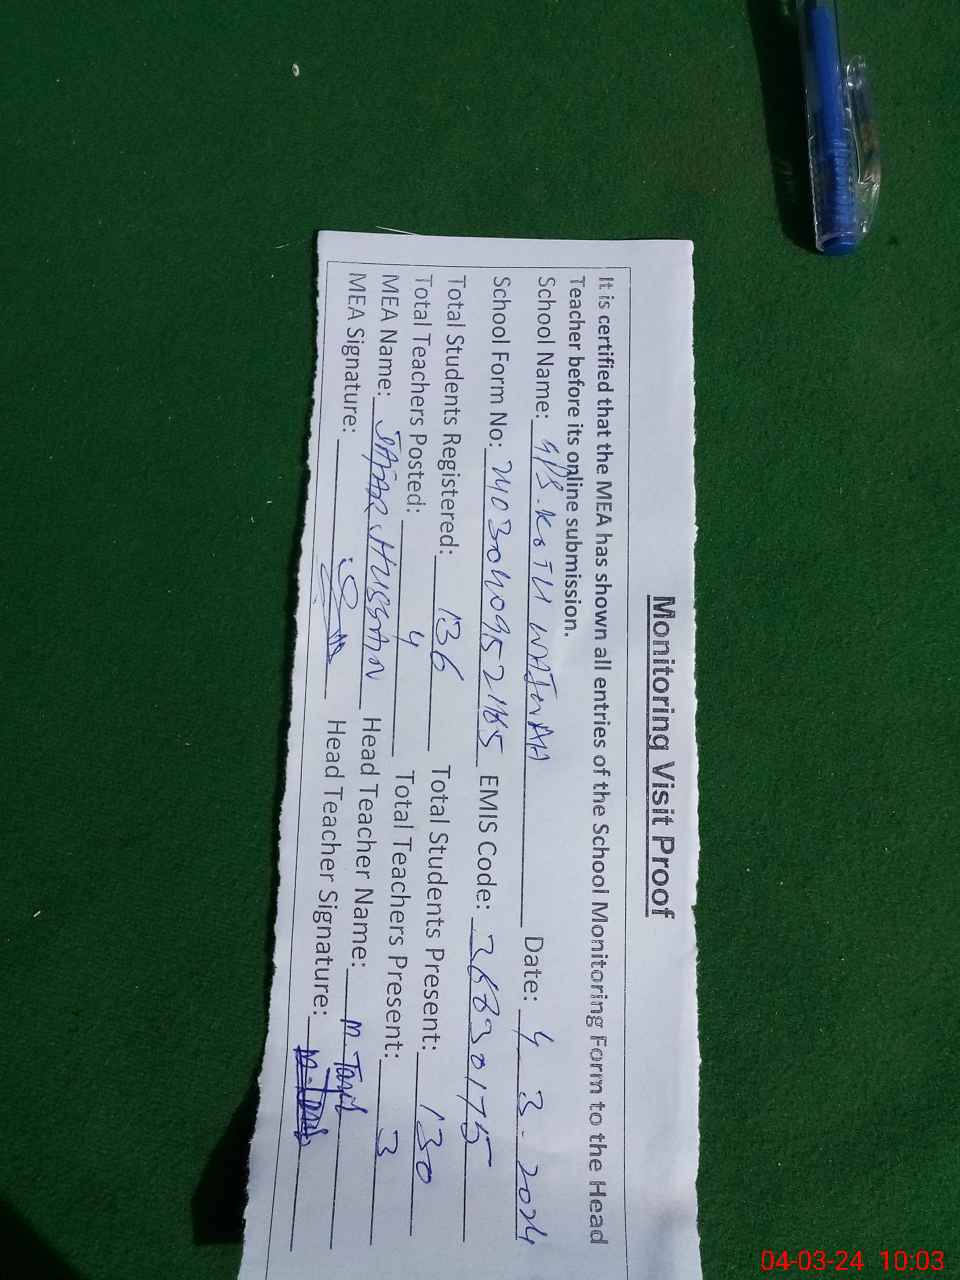 Monitoring Visit Proof
It is certified that the MEA has shown all entries of the School Monitoring Form to the Head
Teacher before its online submission.
School Name: GPS. KOTH Date: 4 3. 2024
School Form No: EMIS Code: 36830175
Total Students Registered: 136 Total Students Present: 130
Total Teachers Posted: 4 Total Teachers Present: 3
MEA Name: HUSSAN Head Teacher Name: M
MEA Signature: Head Teacher Signature:
04-03-24 10:03